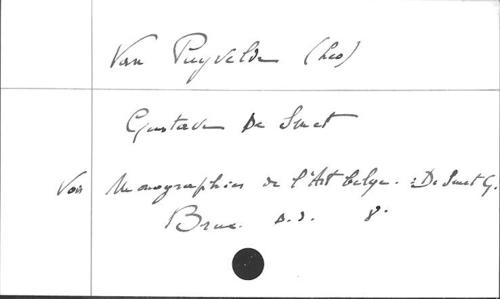 Van Puyvelde (Leo)
Gustave De Smet
Voir Monographies de l'Art belge. : De Smet G.
Brux. s.d. 8°